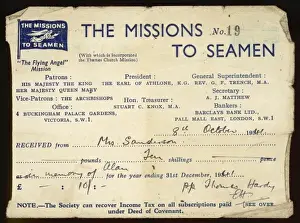 THE MISSIONS
TO SEAMEN
"The Flying Angel"
Mission
THE MISSIONS No. 19
TO SEAMEN
(With which is incorporated
the Thames Church Mission)
Patrons :
HIS MAJESTY THE KING
HER MAJESTY QUEEN MARY
Vice-Patrons : THE ARCHBISHOPS
Office :
4 BUCKINGHAM PALACE GARDENS,
VICTORIA, S.W.1
President :
THE EARL OF ATHLONE, K.G.
Hon. Treasurer :
STUART C. KNOX, M.A.
General Superintendent :
REV. G. F. TRENCH, M.A.
Secretary :
A. J. MATTHEW
Bankers :
BARCLAYS BANK LTD.
PALL MALL EAST, LONDON, S.W.1
8th October 1941
RECEIVED from Mrs Sanderson
Ten shillings pence
in memory of Alan for the year ending 31st December, 1941
£ — : 10/- : pp Thomas Hardy
NOTE.—The Society can recover Income Tax on all subscriptions paid
under Deed of Covenant.
(SEE OVER